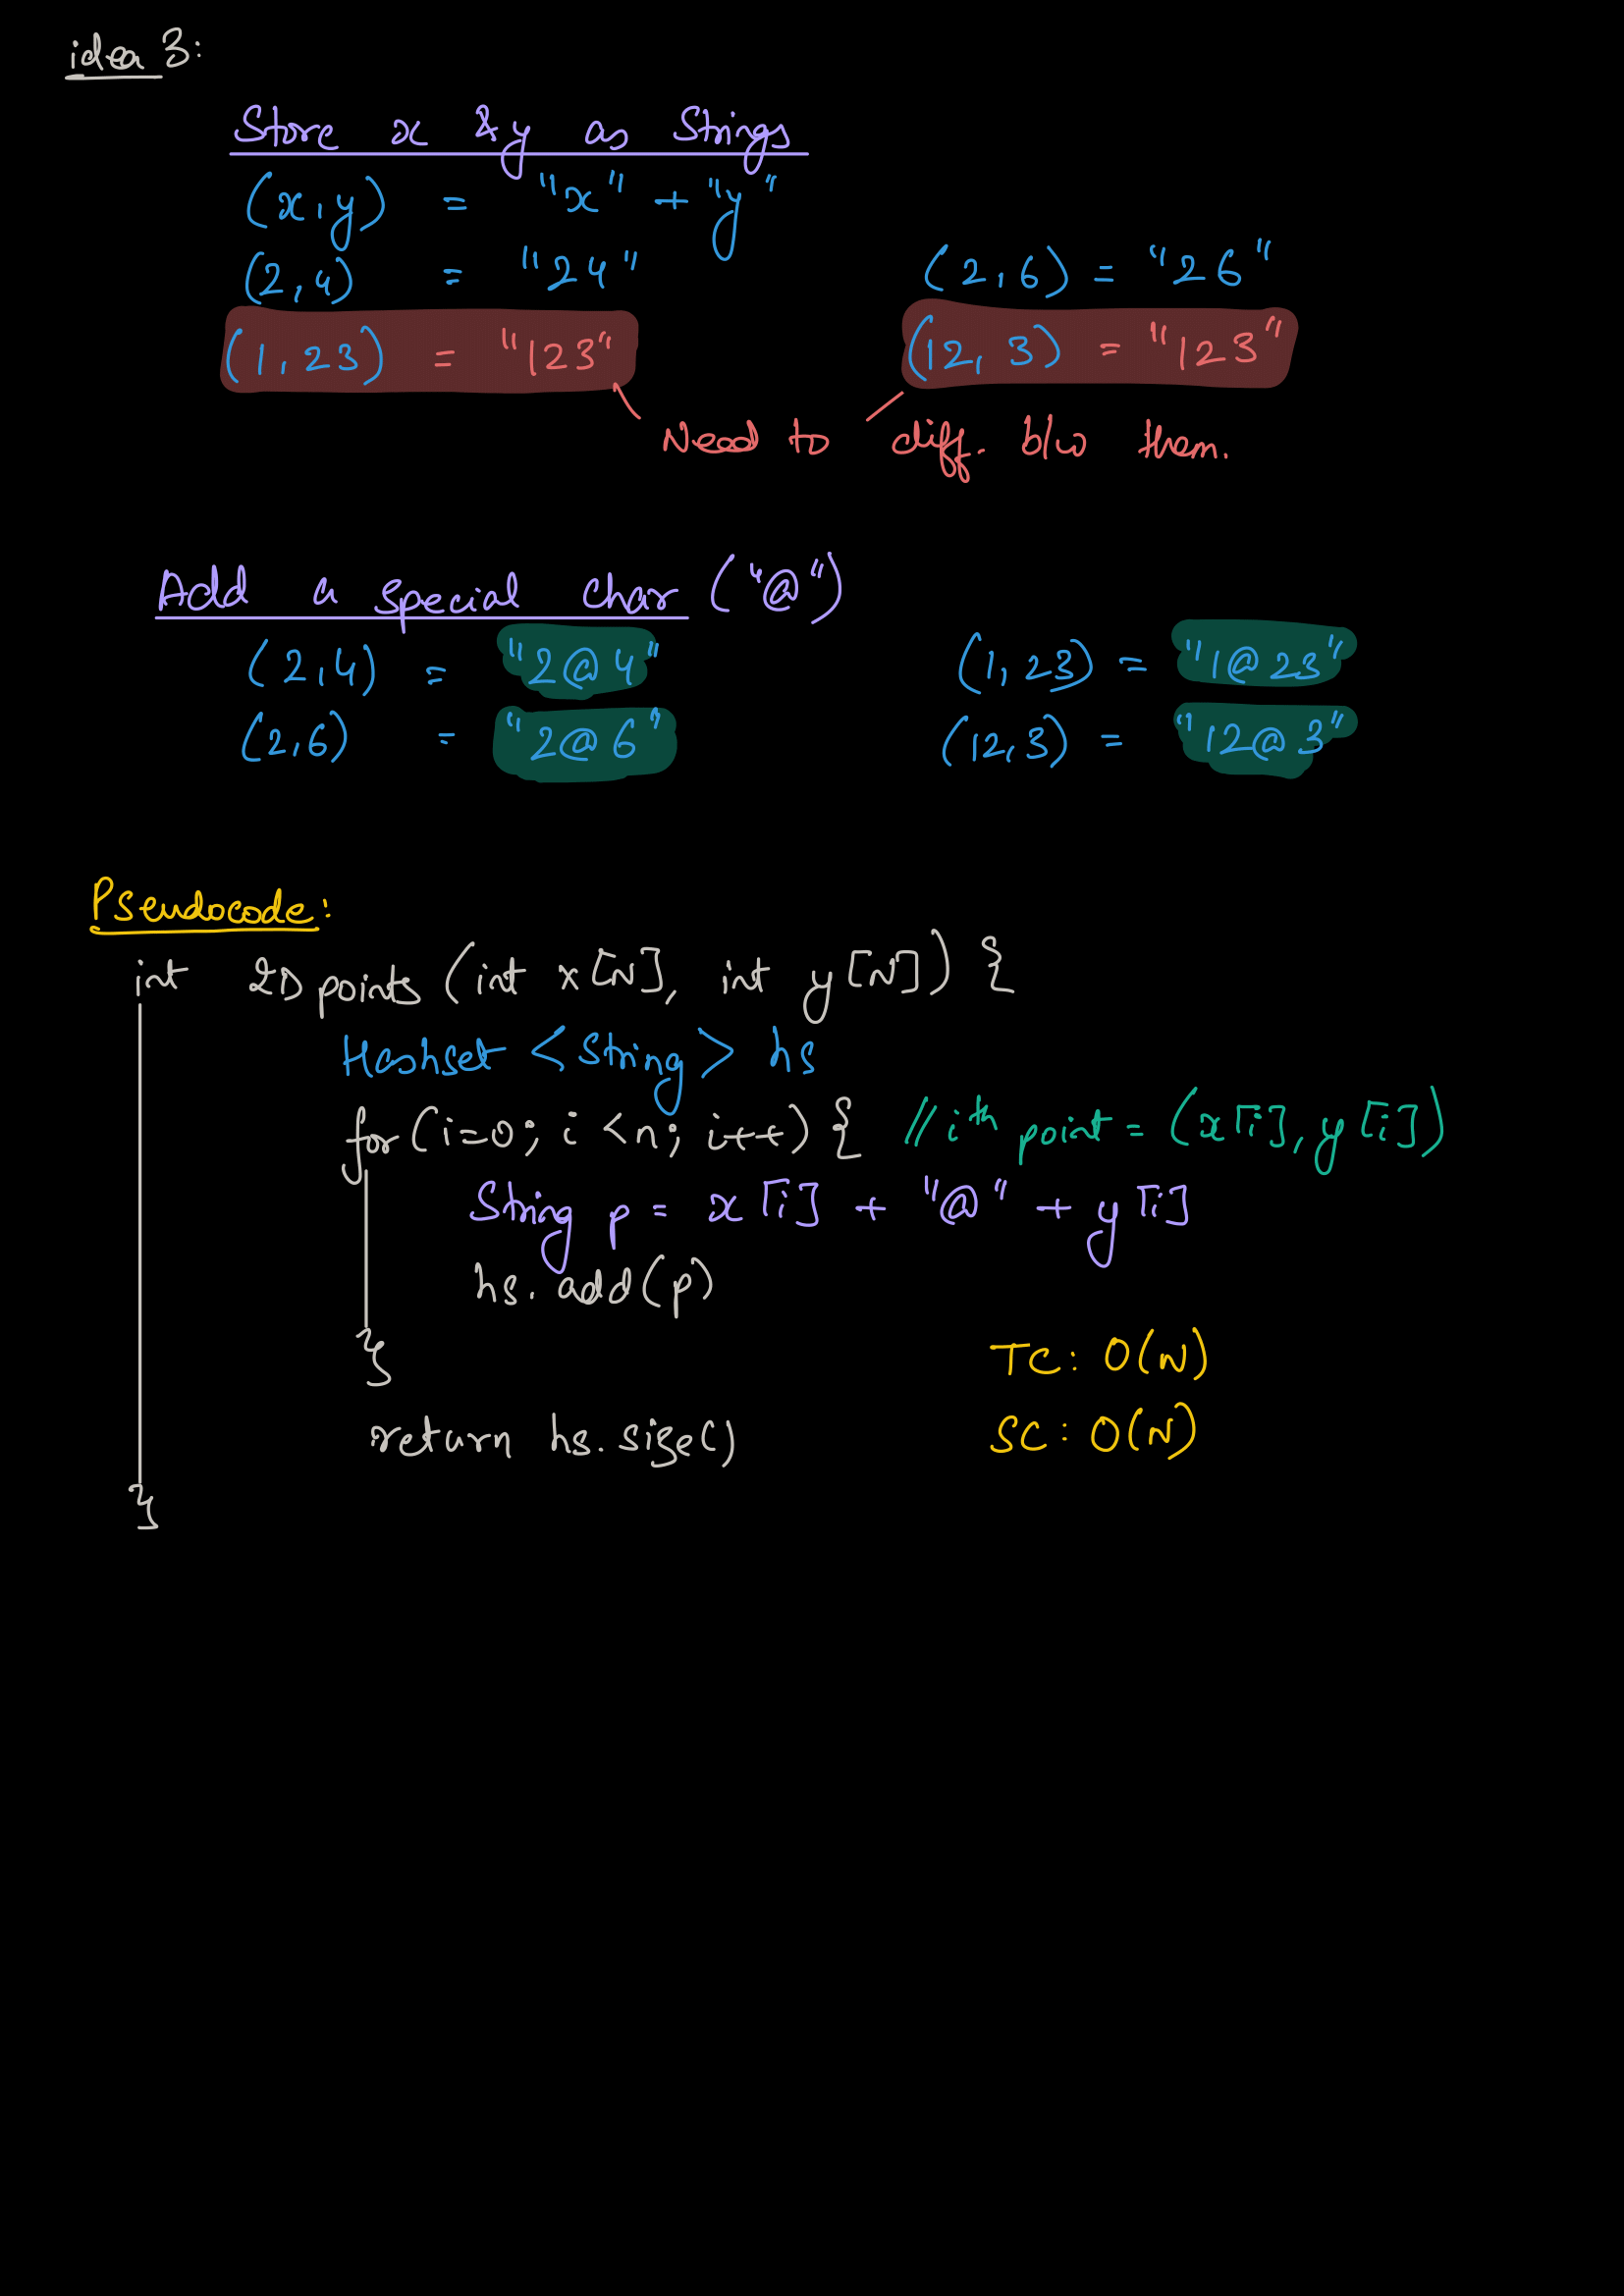 idea 3:
Store x & y as Strings
(x,y) = "x" + "y"
(2,4) = "24" (2,6) = "26"
(1,23) = "123" (12,3) = "123"
Need to diff. b/w them.
Add a special char ("@")
(2,4) = "2@4" (1,23) = "1@23"
(2,6) = "2@6" (12,3) = "12@3"
Pseudocode:
int 2D points (int x[N], int y[N]) {
Hashset <String> hs
for (i=0; i<n; i++) { // ith point = (x[i], y[i])
String p = x[i] + "@" + y[i]
hs.add(p)
}
TC: O(N)
return hs.size() SC: O(N)
}